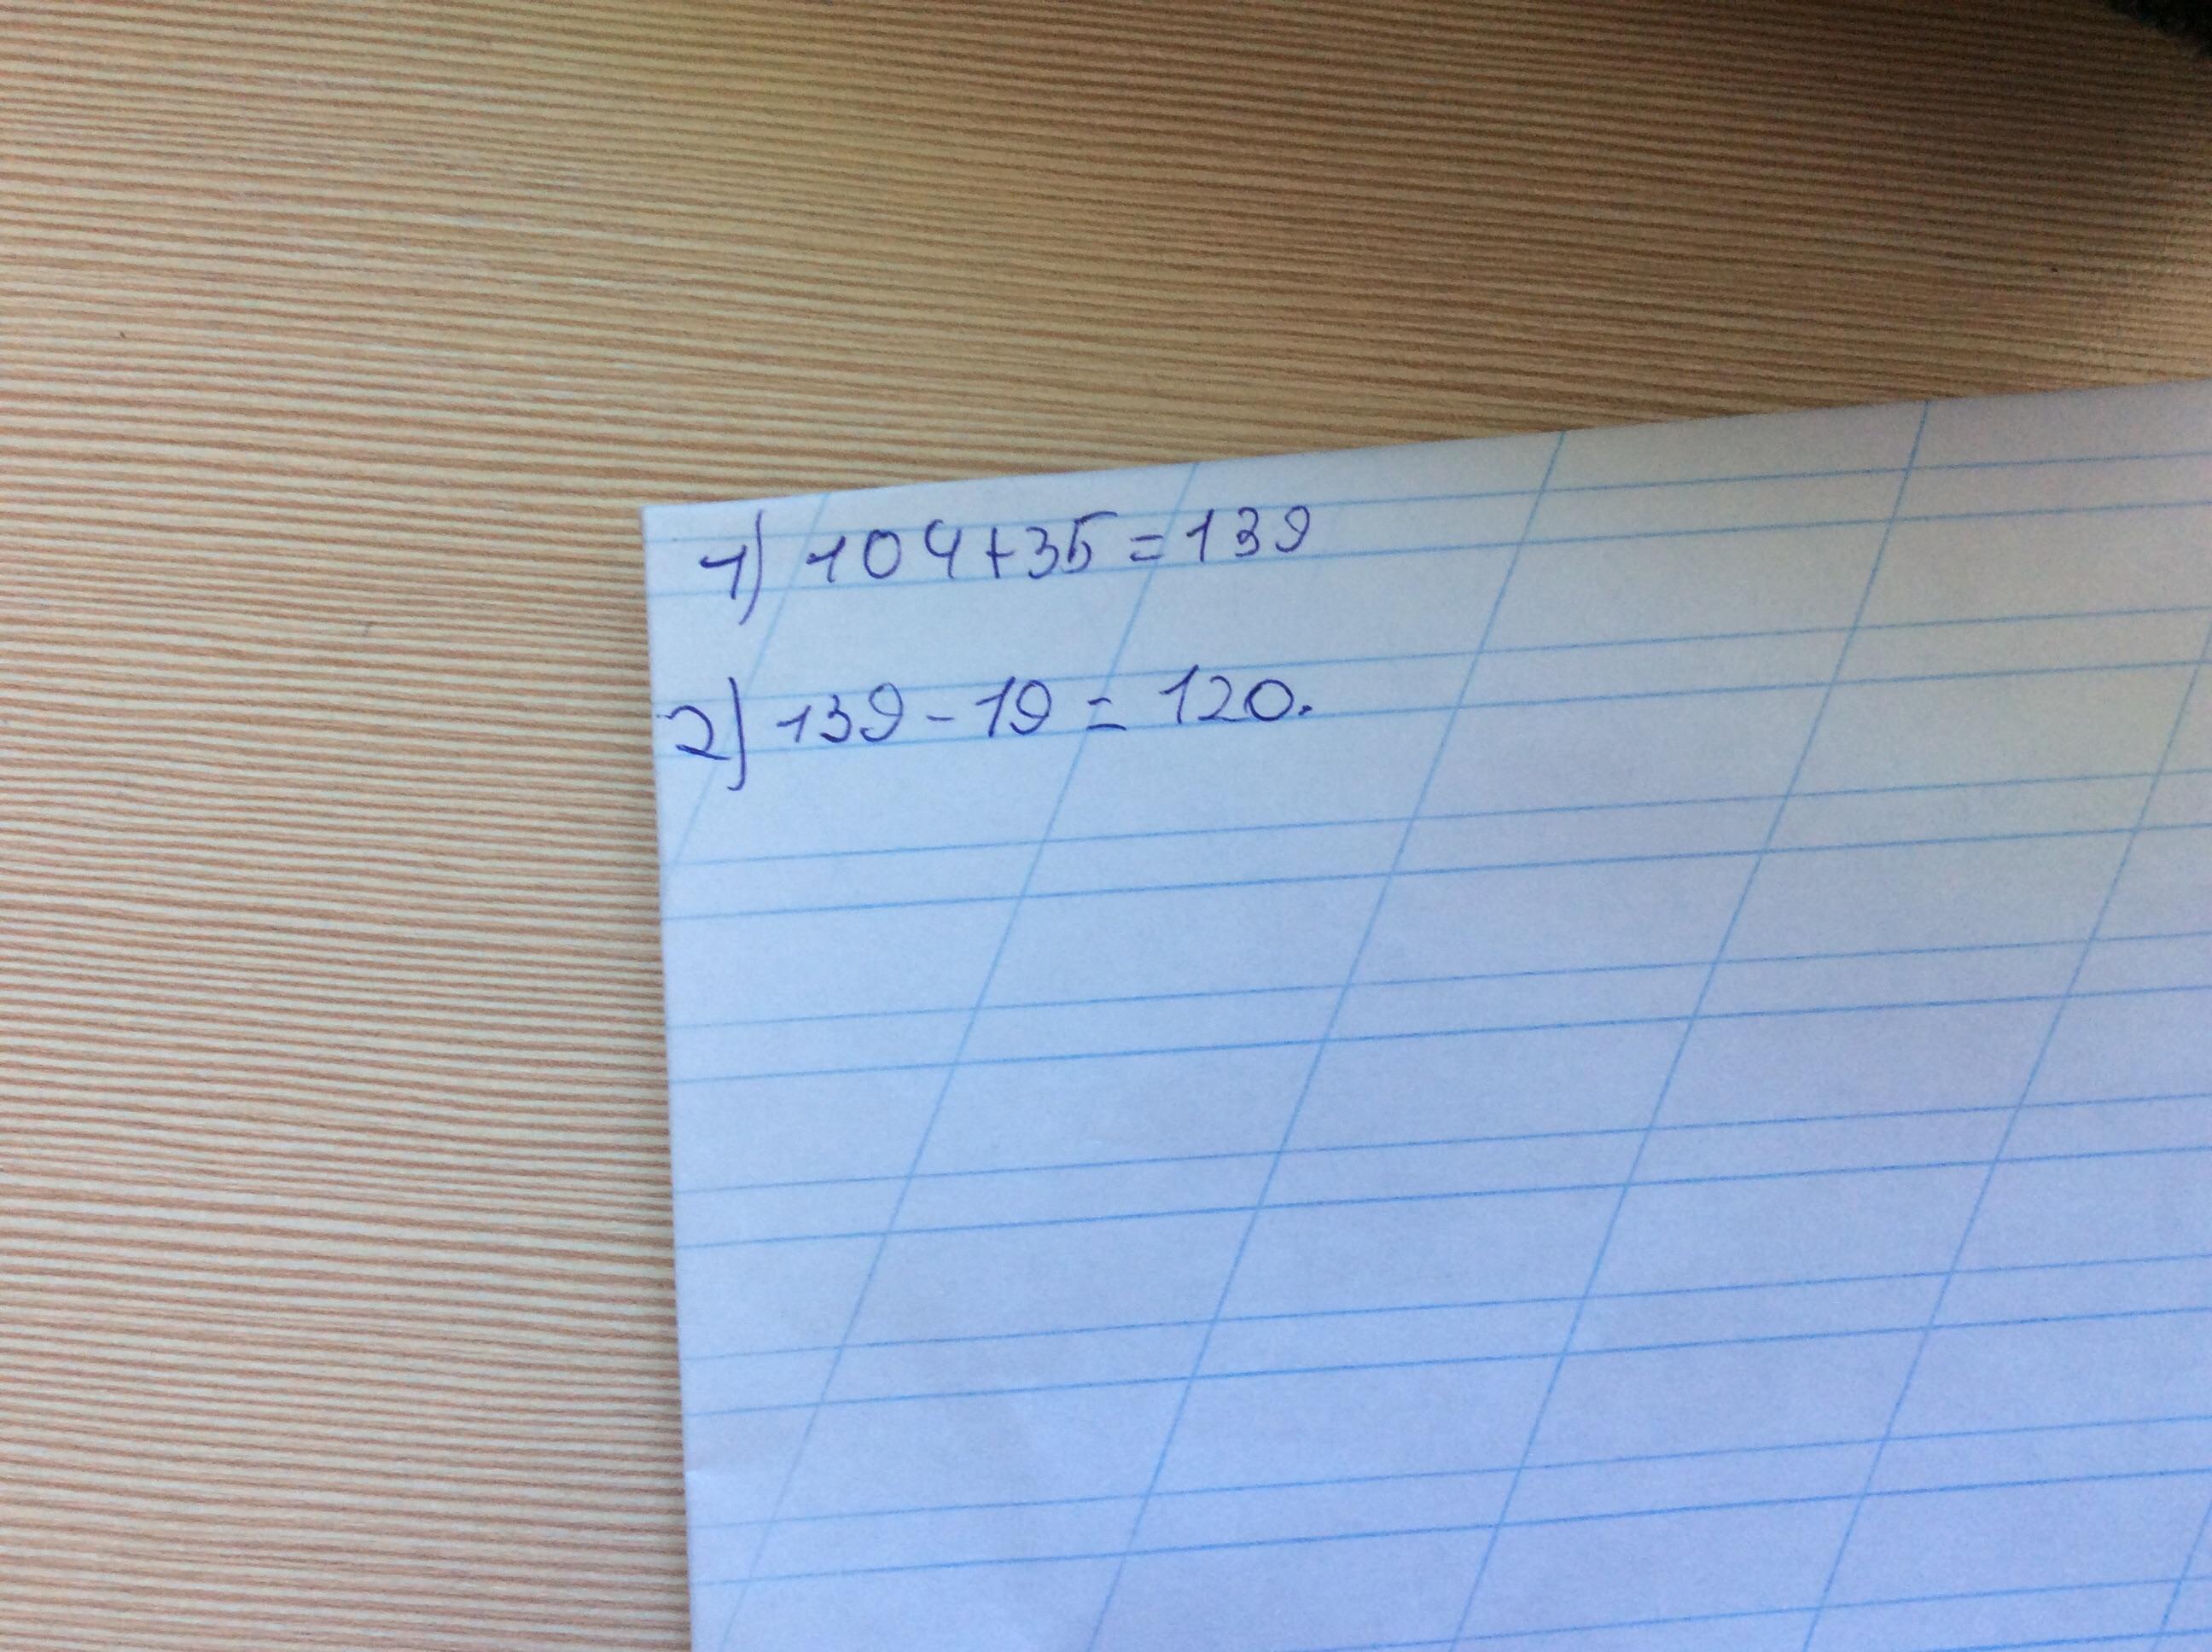 1) 104+35=139
2) 139-19=120.